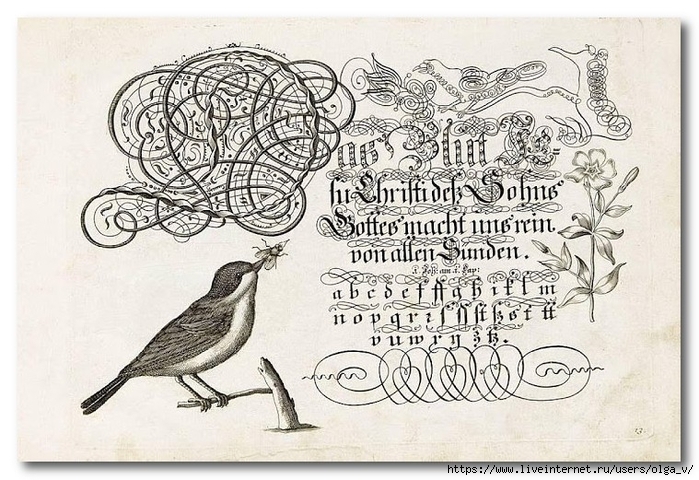 Das Blut Je-
su Christi deß Sohns
Gottes macht uns rein.
von allen Sünden.
1. Joh: am 1. Cap:
a b c d e f ff g h i k l m
n o p q r i s ſ ſſ st ß s t tt
v u w x y z tz.
13.
https://www.liveinternet.ru/users/olga_v/